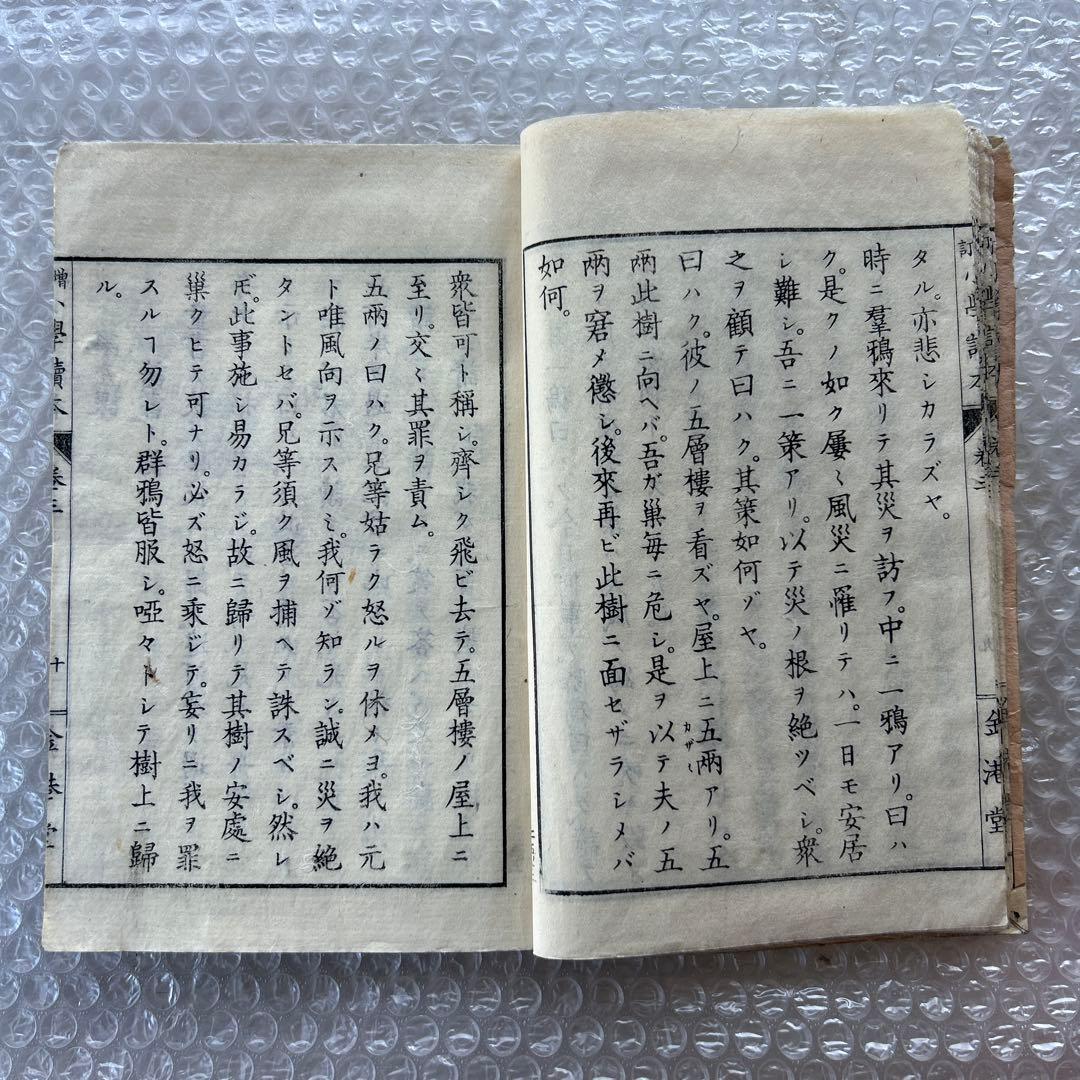 タル。亦悲シカラズヤ。
時ニ羣鴉來リテ其災ヲ訪フ。中ニ一鴉アリ。曰ハ
ク。是クノ如ク屢〻風災ニ罹リテハ。一日モ安居
シ難シ。吾ニ一策アリ。以テ災ノ根ヲ絶ツベシ。衆
之ヲ顧テ曰ハク。其策如何ゾヤ。
曰ハク。彼ノ五層樓ヲ看ズヤ。屋上ニ五兩アリ。五
カザミ
兩此樹ニ向ヘバ。吾ガ巢毎ニ危シ。是ヲ以テ夫ノ五
兩ヲ窘メ懲シ。後來再ビ此樹ニ面セザラシメバ
如何。
衆皆可ト稱シ。齊シク飛ビ去テ。五層樓ノ屋上ニ
至リ。交〻其罪ヲ責ム。
五兩ノ曰ハク。兄等姑ラク怒ルヲ休メヨ。我ハ元
ト唯風向ヲ示スノミ。我何ゾ知ラン。誠ニ災ヲ絶
タントセバ。兄等須ク風ヲ捕ヘテ誅スベシ。然レ
𪜈。此事施シ易カラジ。故ニ歸リテ其樹ノ安處ニ
巢クヒテ可ナリ。必ズ怒ニ乘ジテ。妄リニ我ヲ罪
スルヿ勿レト。群鴉皆服シ。啞々トシテ樹上ニ歸
ル。
増 小學讀本
卷三
十
金港堂
訂 小學讀本
卷三
金港堂